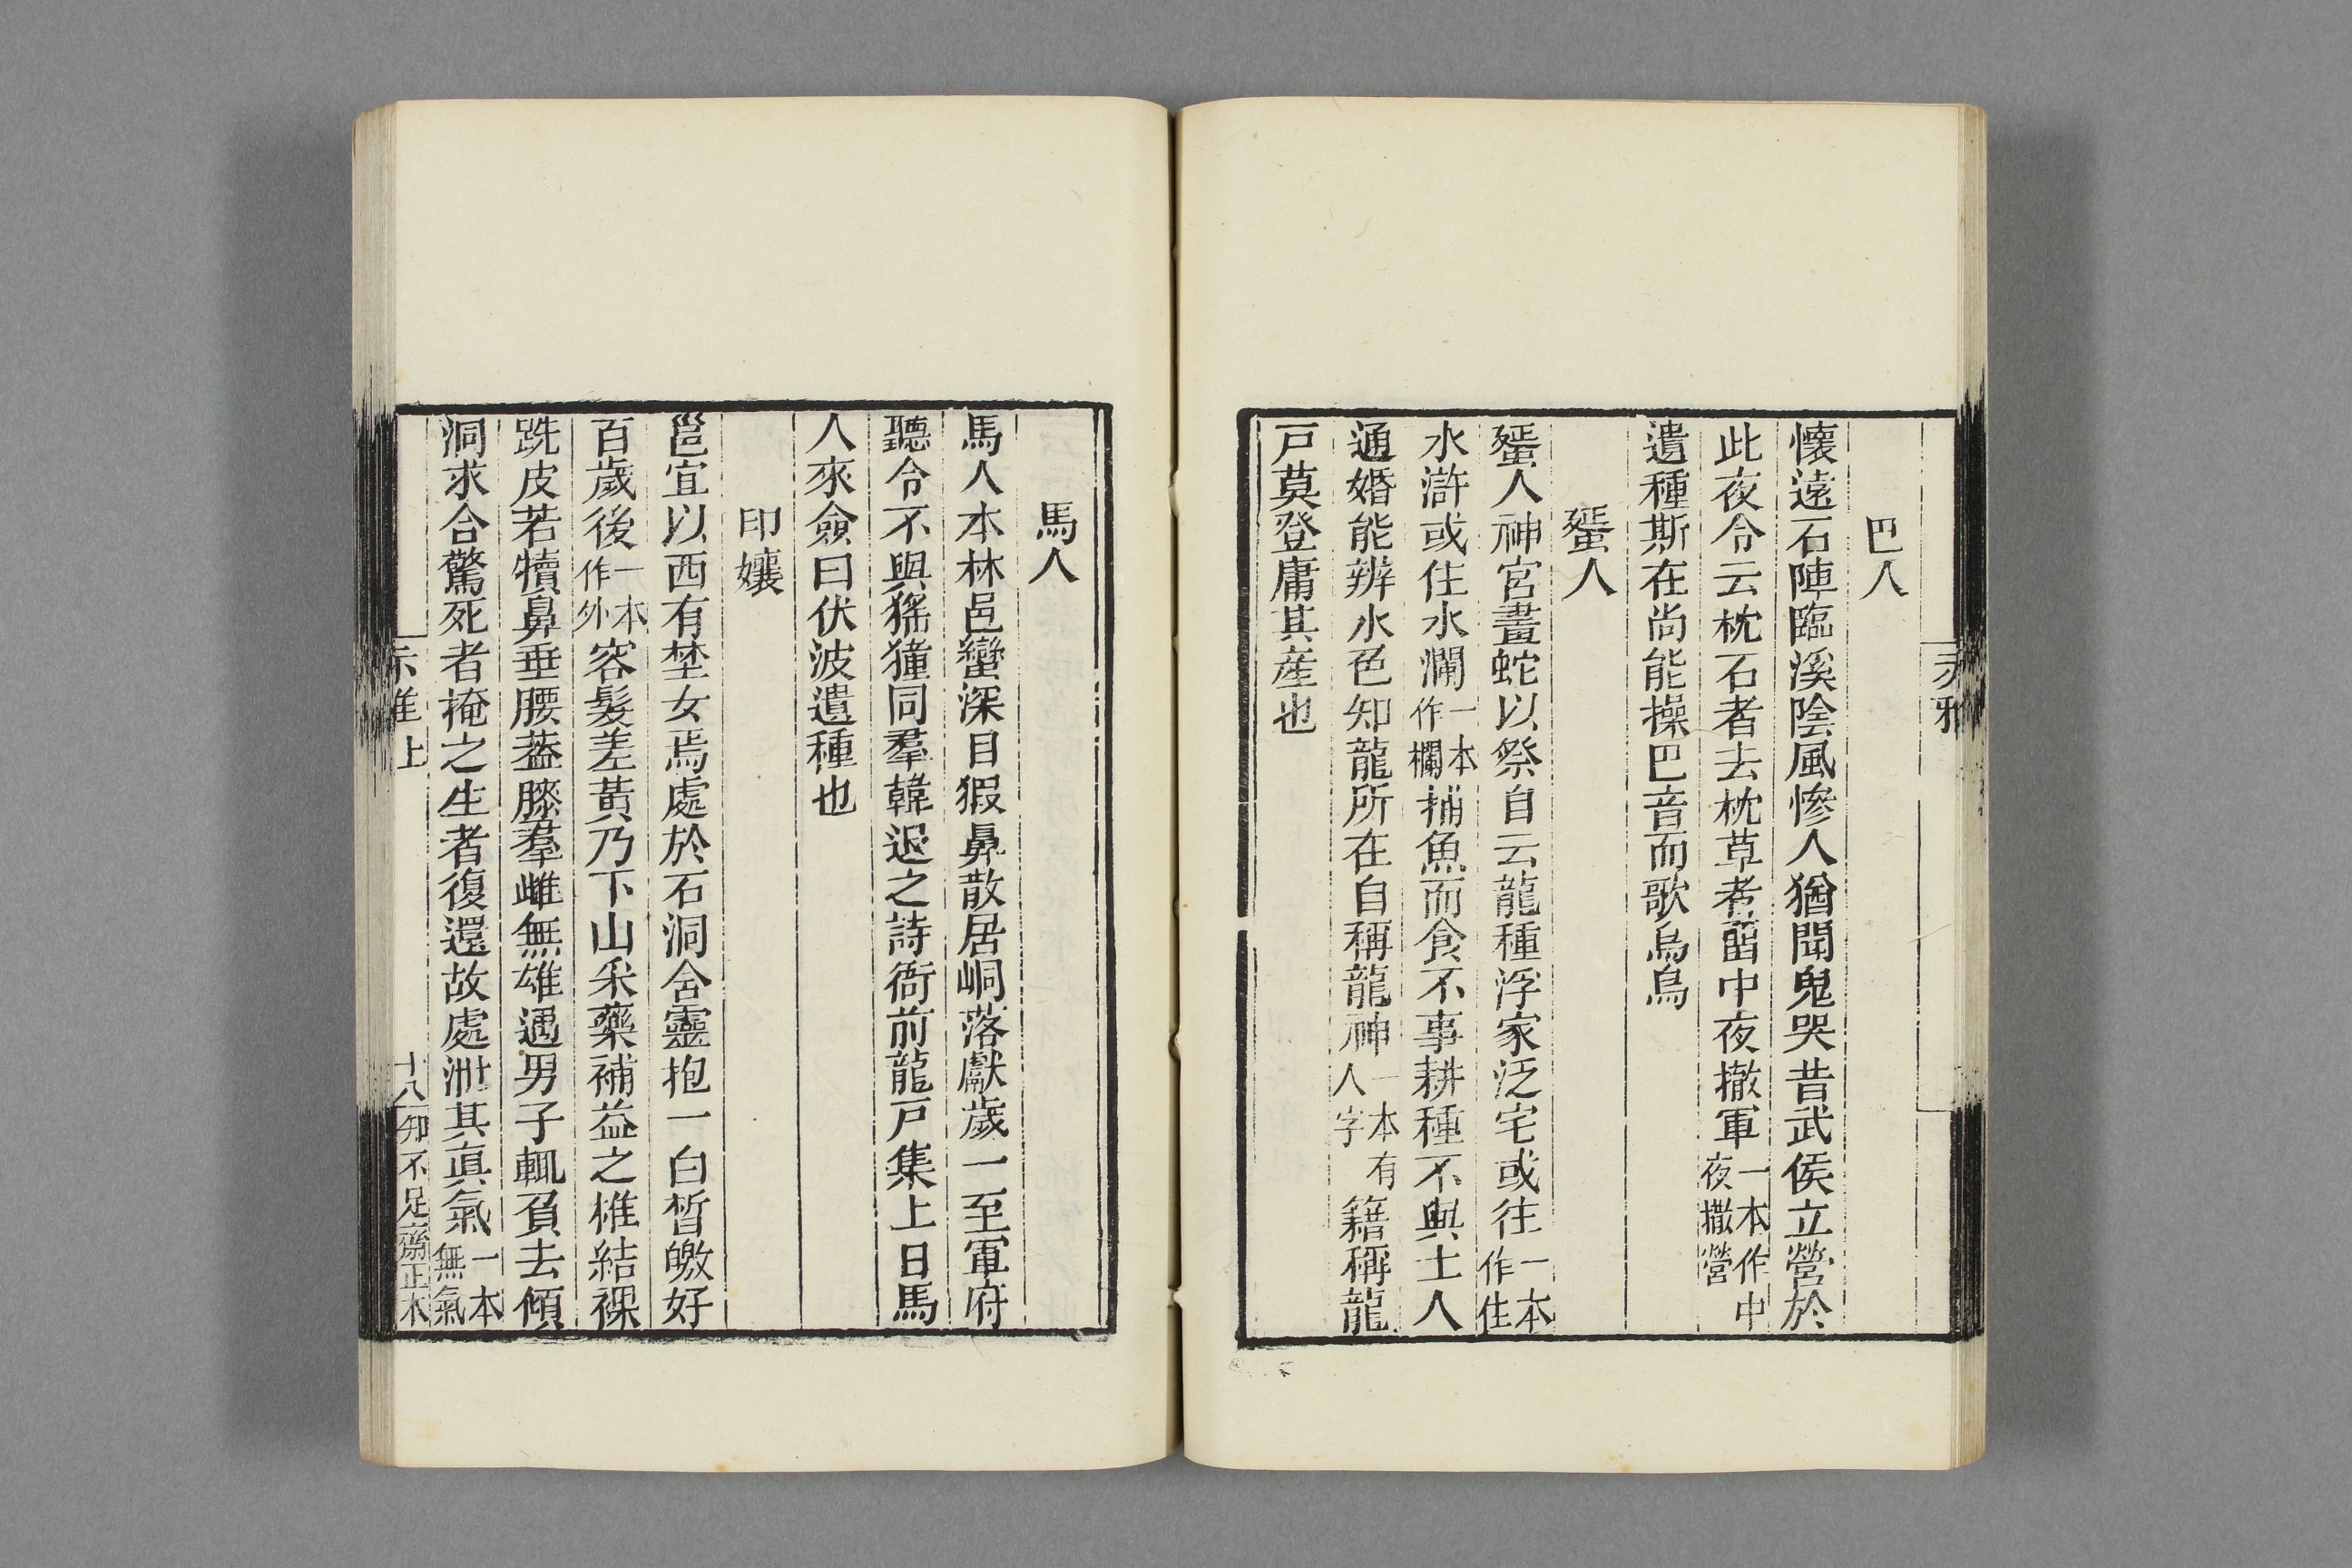 赤雅
巴人
懷遠石陣臨溪陰風慘人猶聞鬼哭昔武侯立營於
此夜令云枕石者去枕草者畱中夜撤軍一本作中夜撒營
遺種斯在尚能操巴音而歌烏烏
蜑人
蜑人神宮畫蛇以祭自云龍種浮家泛宅或往一本作住
水滸或住水瀾一本作欄捕魚而食不事耕種不與土人
通婚能辨水色知龍所在自稱龍神一本有人字籍稱龍
戸莫登庸其產也
馬人
馬人本林邑蠻深目猳鼻散居峒落獻歲一至軍府
聽令不與猺獞同羣韓退之詩衙前龍戸集上日馬
人來僉曰伏波遺種也
卬孃
邕宜以西有埜女焉處於石洞含靈抱一白皙皦好
百歲後一本作外容髮差黃乃下山采藥補益之椎結裸
跣皮若犢鼻垂腰葢膝羣雌無雄遇男子輒負去傾
洞求合驚死者掩之生者復還故處泄其眞氣一本無氣
赤雅上
十八
知不足齋正本